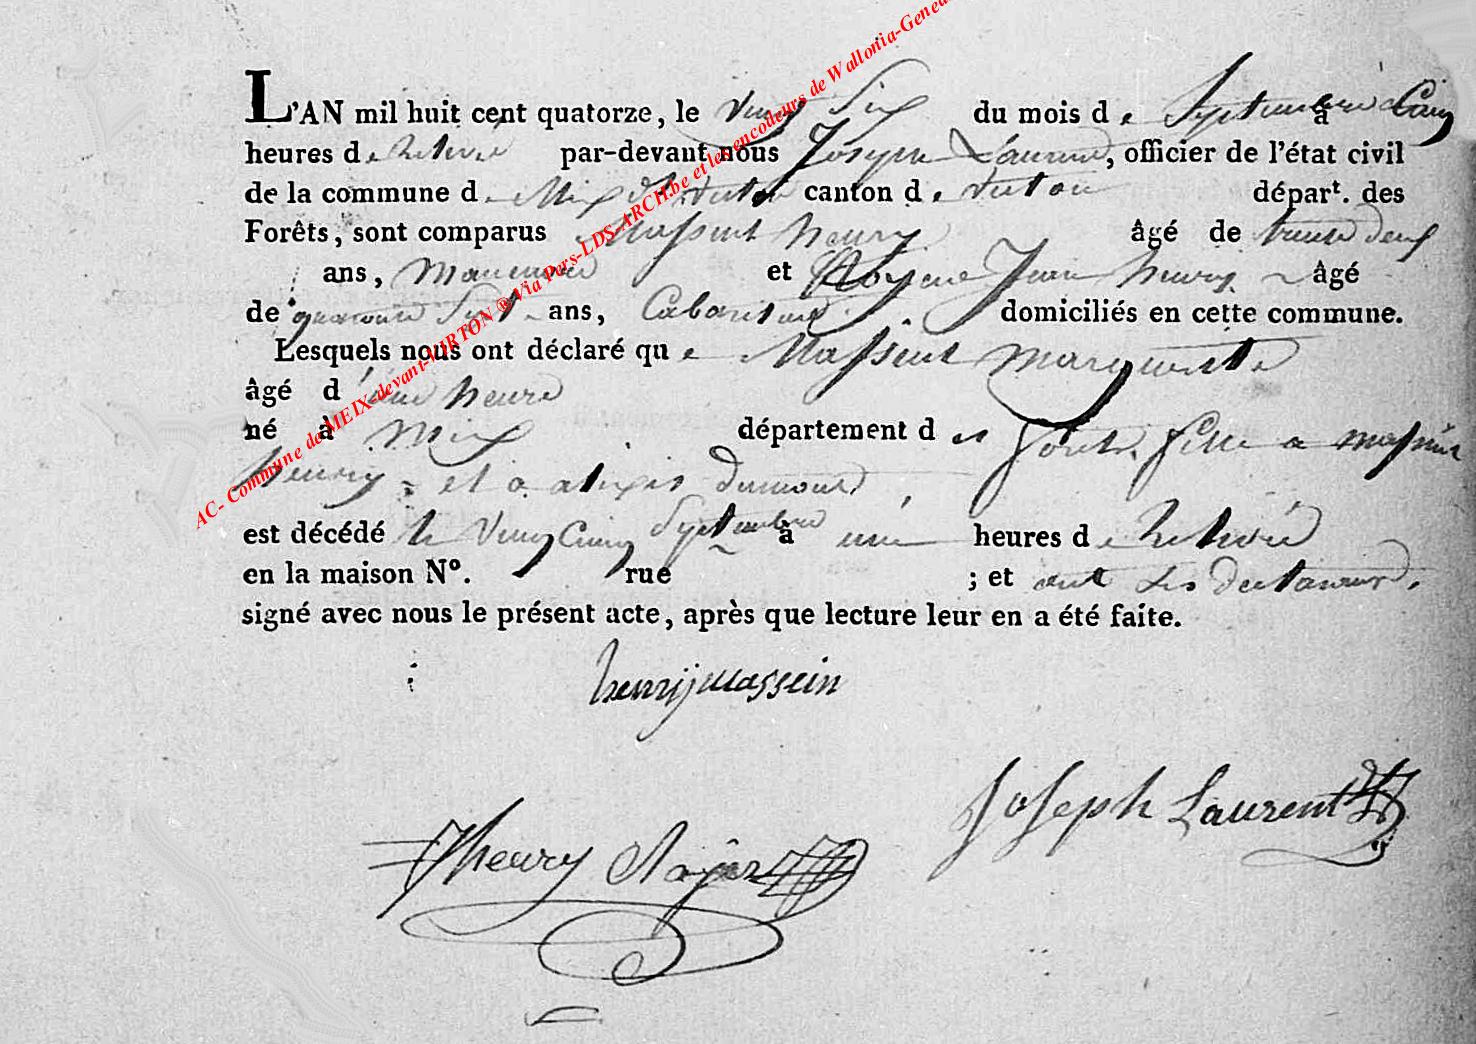 AC- Commune de MEIX-devant-VIRTON ® Via Pers-LDS-ARCH.be et les encodeurs de Wallonia-Genea
L'AN mil huit cent quatorze, le vingt Six du mois de Septembre à Cinq
heures de Relevé par-devant nous Joseph Laurent, officier de l'état civil
de la commune de Meix dt virton canton de virton départ. des
Forêts, sont comparus Massint henry âgé de trente deux
ans, et Jean henry âgé
de quarante Sept ans, Cabaretier domiciliés en cette commune.
Lesquels nous ont déclaré que Massint marguerite
âgé d'une heure
né à Meix département des forêts fille a massint
henry et a dumont,
est décédé le Vingt Cinq Septembre à une heures de Relevée
en la maison Nº. rue ; et ont les declarant,
signé avec nous le présent acte, après que lecture leur en a été faite.
henrij massein
Joseph Laurent
Jhenry